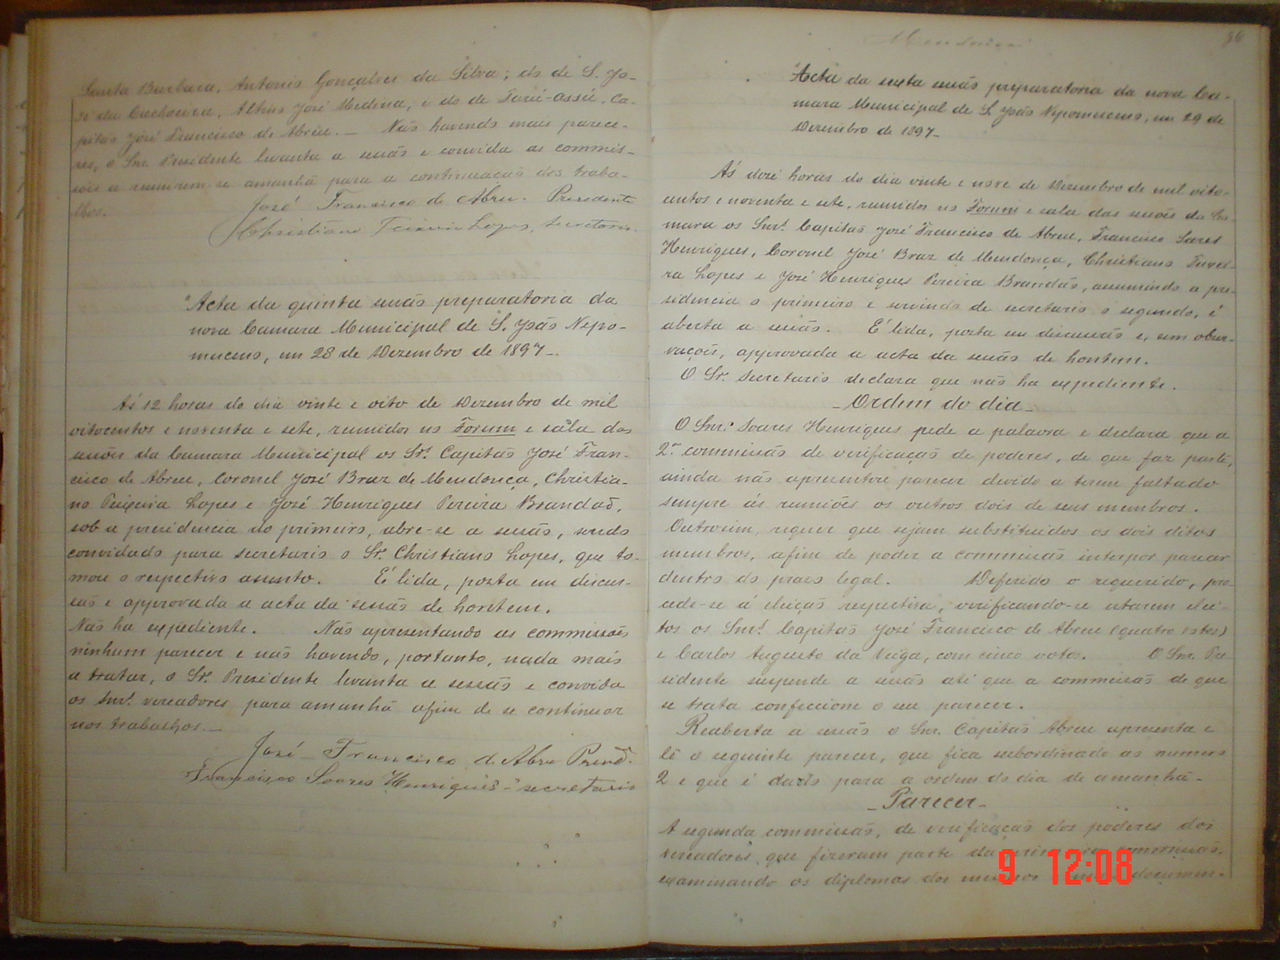 Santa Barbara, Antonio Gonçalves da Silva; do de S. Jo-
sé da Cachoeira, Altino José Medina, e do de Tarú-assú, Ca-
pitão José Francisco de Abreu. — Não havendo mais parece-
res, o Snr. Presidente levanta a sessão e convida as commis-
sões a reunirem-se amanhã para a continuação dos traba-
lhos.
José Francisco de Abreu. Presidente
Christiano Teixeira Lopes, secretario.
Acta da quinta sessão preparatoria da
nova Camara Municipal de S. João Nepo-
muceno, em 28 de Dezembro de 1897—.
Ás 12 horas do dia vinte e oito de Dezembro de mil
oitocentos e noventa e sete, reunidos no Forum e sala das
sessões da Camara Municipal os Srs. Capitão José Fran-
cisco de Abreu, Coronel José Braz de Mendonça, Christia-
no Teixeira Lopes e José Henriques Pereira Brandão,
sob a presidencia do primeiro, abre-se a sessão, sendo
convidado para secretario o Sr. Christiano Lopes, que to-
mou o respectivo assento. É lida, posta em discus-
são e approvada a acta da sessão de hontem.
Não ha expediente. Não apresentando as commissões
nenhum parecer e não havendo, portanto, nada mais
a tratar, o Sr. Presidente levanta a sessão e convida
os Snrs. vereadores para amanhã afim de se continuar
nos trabalhos.—
José Francisco d Abreu Presid.e
Francisco Soares Henriques - secretario
36
Acta da sexta sessão preparatoria da nova Ca-
mara Municipal de S. João Nepomuceno, em 29 de
Dezembro de 1897—
Ás doze horas do dia vinte e nove de Dezembro de mil oito-
centos e noventa e sete, reunidos no Forum e sala das sessões da Ca-
mara os Snrs. Capitão José Francisco de Abreu, Francisco Soares
Henriques, Coronel José Braz de Mendonça, Christiano Teixei-
ra Lopes e José Henriques Pereira Brandão, assumindo a pre-
sidencia o primeiro e servindo de secretario o segundo, é
aberta a sessão. É lida, posta em discussão e, sem obser-
vações, approvada a acta da sessão de hontem.
O Sr. Secretario declara que não ha expediente.
- Ordem do dia -
O Snr. Soares Henriques pede a palavra e declara que a
2.a commissão de verificação de poderes, de que faz parte,
ainda não apresentou parecer devido a terem faltado
sempre ás reuniões os outros dois de seus membros.
Outrosim, requer que sejam substituidos os dois ditos
membros, afim de poder a commissão interpor parecer
dentro do praso legal. Deferido o requerido, pro-
cede-se á eleição respectiva, verificando-se estarem elei-
tos os Snrs. Capitão José Francisco de Abreu (quatro votos)
e Carlos Augusto da Veiga, com cinco votos. O Snr. Pre-
sidente suspende a sessão até que a commissão de que
se trata confeccione o seu parecer.
Reaberta a sessão o Snr. Capitão Abreu apresenta e
lê o seguinte parecer, que fica subordinado ao numero
2 e que é dado para a ordem do dia de amanhã.
- Parecer -
A segunda commissão, de verificação dos poderes dos
vereadores que fizeram parte da primeira commissão,
examinando os diplomas dos mesmos
9 12:08